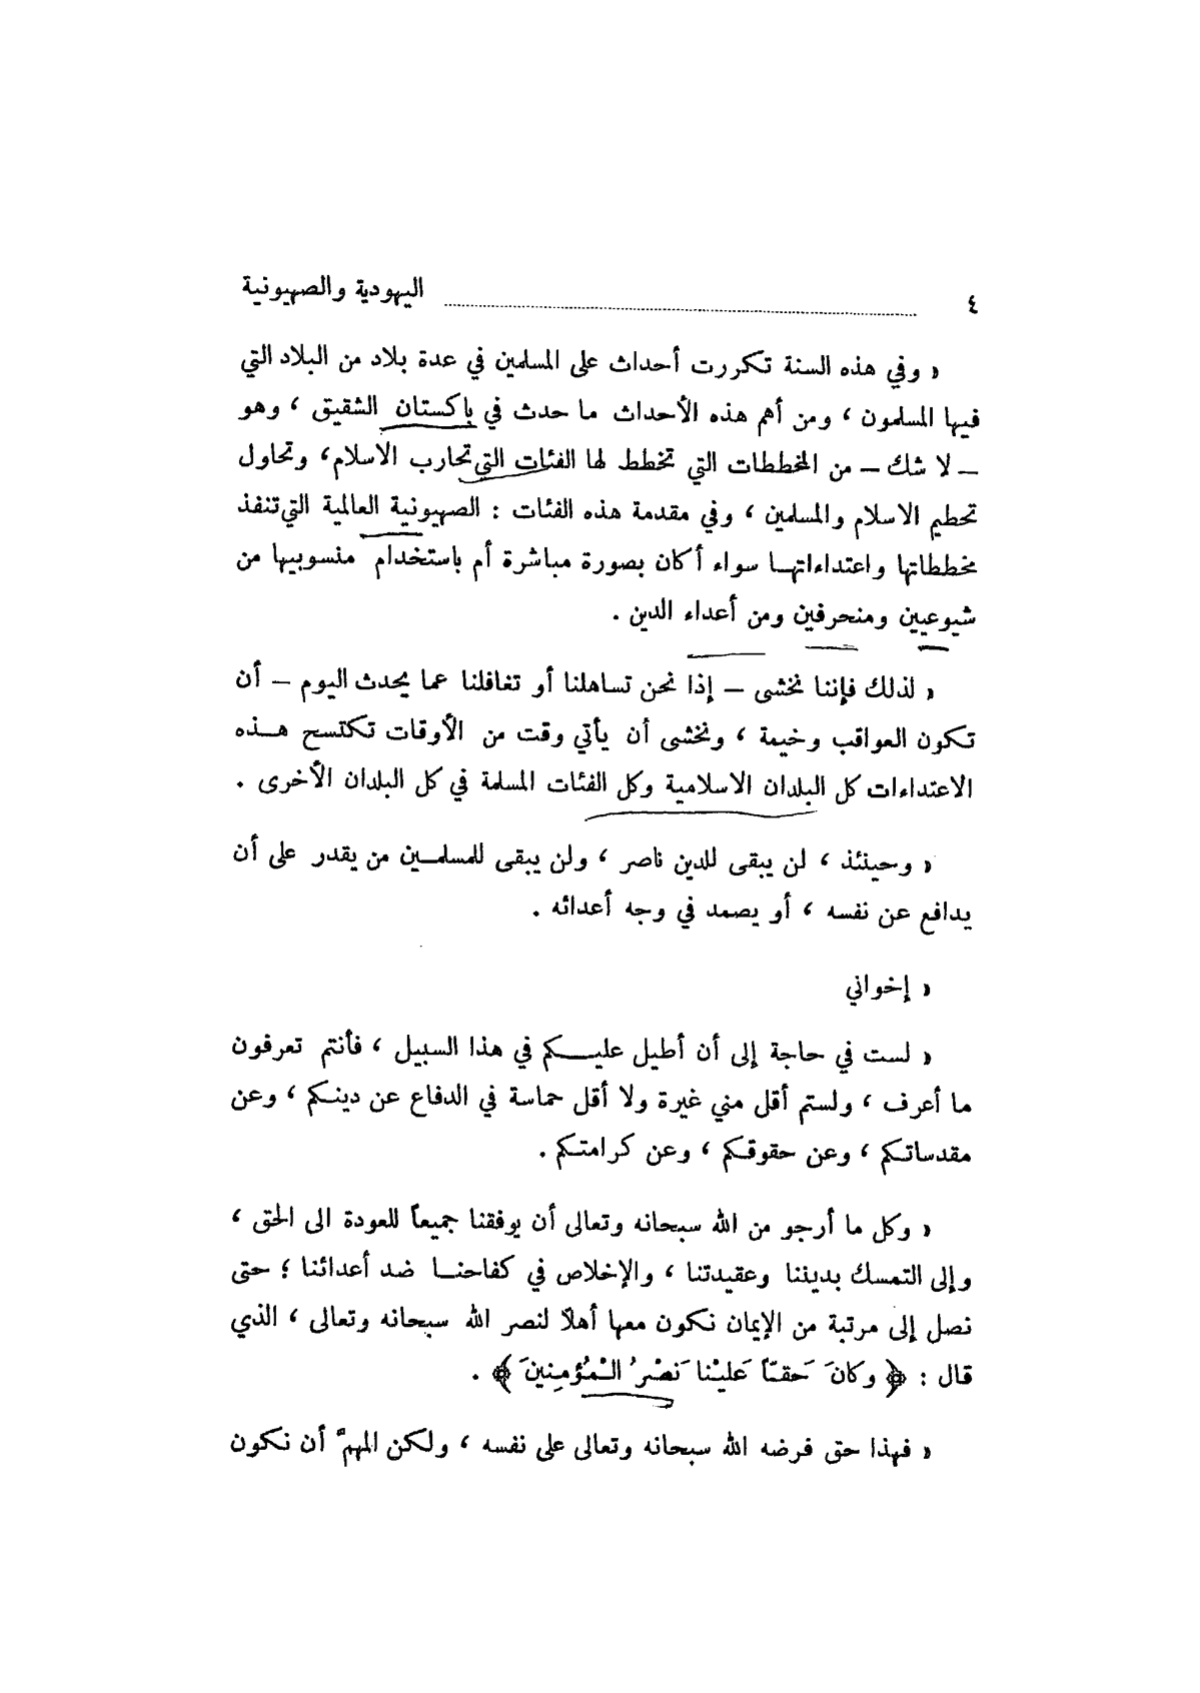 ٤ اليهودية والصهيونية
« وفي هذه السنة تكررت أحداث على المسلمين في عدة بلاد من البلاد التي
فيها المسلمون ، ومن أهم هذه الأحداث ما حدث في باكستان الشقيق ، وهو
– لا شك – من المخططات التي تخطط لها الفئات التي تحارب الاسلام ، وتحاول
تحطيم الاسلام والمسلمين ، وفي مقدمة هذه الفئات : الصهيونية العالمية التي تنفذ
مخططاتها واعتداءاتها سواء أكان بصورة مباشرة أم باستخدام منسوبيها من
شيوعيين ومنحرفين ومن أعداء الدين .
« لذلك فإننا نخشى – إذا نحن تساهلنا أو تغافلنا عما يحدث اليوم – أن
تكون العواقب وخيمة ، ونخشى أن يأتي وقت من الأوقات تكتسح هذه
الاعتداءات كل البلدان الاسلامية وكل الفئات المسلمة في كل البلدان الأخرى .
« وحينئذ ، لن يبقى للدين ناصر ، ولن يبقى للمسلمين من يقدر على أن
يدافع عن نفسه ، أو يصمد في وجه أعدائه .
« إخواني
« لست في حاجة إلى أن أطيل عليكم في هذا السبيل ، فأنتم تعرفون
ما أعرف ، ولستم أقل مني غيرة ولا أقل حماسة في الدفاع عن دينكم ، وعن
مقدساتكم ، وعن حقوقكم ، وعن كرامتكم .
« وكل ما أرجو من الله سبحانه وتعالى أن يوفقنا جميعاً للعودة الى الحق ،
وإلى التمسك بديننا وعقيدتنا ، والإخلاص في كفاحنا ضد أعدائنا ؛ حتى
نصل إلى مرتبة من الإيمان نكون معها أهلاً لنصر الله سبحانه وتعالى ، الذي
قال : ﴿ وكانَ حَقّاً عَليْنا نَصْرُ الْمُؤمِنينَ ﴾ .
« فهذا حق فرضه الله سبحانه وتعالى على نفسه ، ولكن المهمّ أن نكون